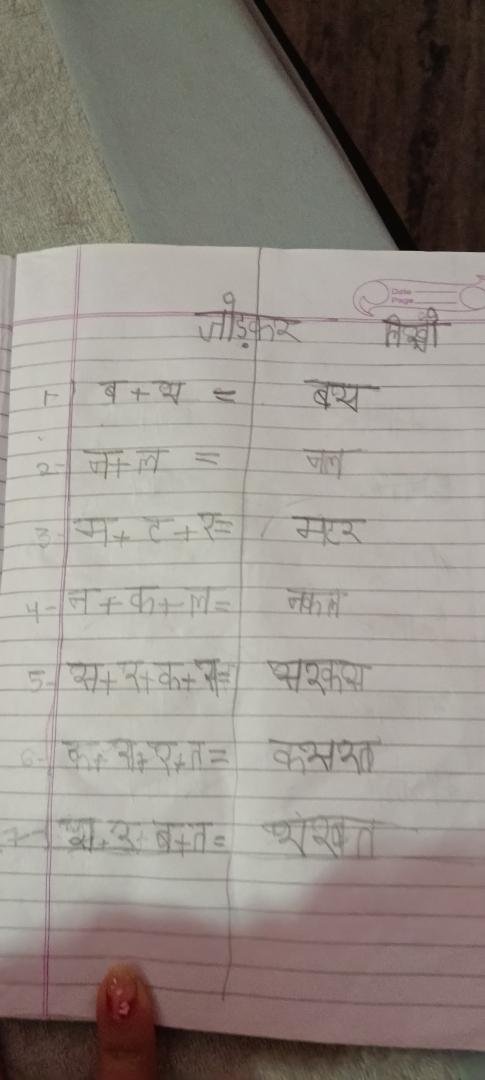 Date
Page
जोड़कर लिखो
1) ब + स = बस
2- ज + ल = जल
3- म + ट + र = मटर
4- न + क + ल = नकल
5- स + र + क + स = सरकस
6- क + स + र + त = कसरत
7- श + र + ब + त = शरबत